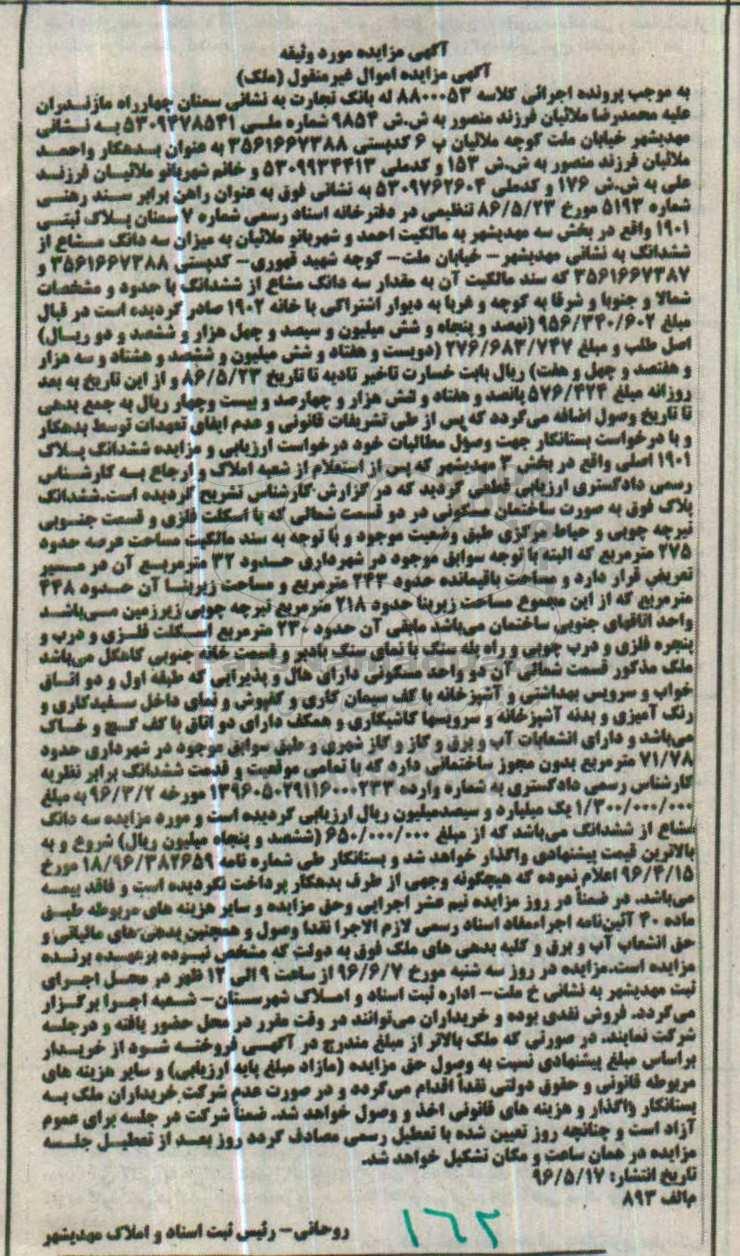 آگهی مزایده مورد وثیقه
آگهی مزایده اموال غیرمنقول (ملک)
به موجب پرونده اجرائی کلاسه ۸۸۰۰۰۵۳ له بانک تجارت به نشانی سمنان چهارراه مازندران
علیه محمدرضا ملائیان فرزند منصور به ش.ش ۹۸۵۴ شماره ملی ۵۳۰۹۴۷۸۵۴۱ به نشانی
مهدیشهر خیابان ملت کوچه ملائیان پ ۶ کدپستی ۳۵۶۱۶۶۷۳۸۸ به عنوان بدهکار واحمد
ملائیان فرزند منصور به ش.ش ۱۵۳ و کدملی ۵۳۰۹۹۳۴۴۱۳ و خانم شهربانو ملائیان فرزند
علی به ش.ش ۱۷۶ و کدملی ۵۳۰۹۷۶۲۶۰۴ به نشانی فوق به عنوان راهن برابر سند رهنی
شماره ۵۱۹۳ مورخ ۸۶/۵/۲۳ تنظیمی در دفترخانه اسناد رسمی شماره ۷ سمنان پلاک ثبتی
۱۹۰۱ واقع در بخش سه مهدیشهر به مالکیت احمد و شهربانو ملائیان به میزان سه دانگ مشاع از
ششدانگ به نشانی مهدیشهر – خیابان ملت– کوچه شهید قهوری– کدپستی ۳۵۶۱۶۶۷۳۸۸ و
۳۵۶۱۶۶۷۳۸۷ که سند مالکیت آن به مقدار سه دانگ مشاع از ششدانگ با حدود و مشخصات
شمالا و جنوبا و شرقا به کوچه و غربا به دیوار اشتراکی با خانه ۱۹۰۲ صادر گردیده است در قبال
مبلغ ۹۵۶/۳۴۰/۶۰۲ (نهصد و پنجاه و شش میلیون و سیصد و چهل هزار و ششصد و دو ریال)
اصل طلب و مبلغ ۲۷۶/۶۸۳/۷۴۷ (دویست و هفتاد و شش میلیون و ششصد و هشتاد و سه هزار
و هفتصد و چهل و هفت) ریال بابت خسارت تاخیر تادیه تا تاریخ ۸۶/۵/۲۳ و از این تاریخ به بعد
روزانه مبلغ ۵۷۶/۴۲۴ پانصد و هفتاد و شش هزار و چهارصد و بیست وچهار ریال به جمع بدهی
تا تاریخ وصول اضافه می‌گردد که پس از طی تشریفات قانونی و عدم ایفای تعهدات توسط بدهکار
و با درخواست بستانکار جهت وصول مطالبات خود درخواست ارزیابی و مزایده ششدانگ پلاک
۱۹۰۱ اصلی واقع در بخش ۳ مهدیشهر که پس از استعلام از شعبه املاک و ارجاع به کارشناس
رسمی دادگستری ارزیابی قطعی گردید که در گزارش کارشناس تشریح گردیده است.ششدانگ
پلاک فوق به صورت ساختمان مسکونی در دو قسمت شمالی که با اسکلت فلزی و قسمت جنوبی
تیرچه چوبی و حیاط مرکزی طبق وضعیت موجود و با توجه به سند مالکیت مساحت عرصه حدود
۲۷۵ مترمربع که البته با توجه سوابق موجود در شهرداری حدود ۳۲ مترمربع آن در مسیر
تعریض قرار دارد و مساحت باقیمانده حدود ۲۴۳ مترمربع و مساحت زیربنا آن حدود ۴۴۸
مترمربع که از این مجموع مساحت زیربنا حدود ۲۱۸ مترمربع تیرچه چوبی زیرزمین می‌باشد
واحد اتاقهای جنوبی ساختمان می‌باشد مابقی آن حدود ۲۳۰ مترمربع اسکلت فلزی و درب و
پنجره فلزی و درب چوبی و راه پله سنگ با نمای سنگ بادبر و قسمت خانه جنوبی کاهگل می‌باشد
ملک مذکور قسمت شمالی آن دو واحد مسکونی دارای هال و پذیرایی که طبقه اول و دو اتاق
خواب و سرویس بهداشتی و آشپزخانه با کف سیمان کاری و کفپوش و نمای داخل سفیدکاری و
رنگ آمیزی و بدنه آشپزخانه و سرویسها کاشیکاری و همکف دارای دو اتاق با کف گچ و خاک
می‌باشد و دارای انشعابات آب و برق و گاز و گاز شهری و طبق سوابق موجود در شهرداری حدود
۷۱/۷۸ مترمربع بدون مجوز ساختمانی دارد که با تمامی موقعیت و قدمت ششدانگ برابر نظریه
کارشناس رسمی دادگستری به شماره وارده ۱۳۹۶۰۵۰۲۹۱۱۶۰۰۰۲۳۳ مورخه ۹۶/۳/۲ به مبلغ
۱/۳۰۰/۰۰۰/۰۰۰ یک میلیارد و سیصدمیلیون ریال ارزیابی گردیده است و مورد مزایده سه دانگ
مشاع از ششدانگ می‌باشد که از مبلغ ۶۵۰/۰۰۰/۰۰۰ (ششصد و پنجاه میلیون ریال) شروع و به
بالاترین قیمت پیشنهادی واگذار خواهد شد و بستانکار طی شماره نامه ۱۸/۹۶/۳۸۲۶۵۹ مورخ
۹۶/۴/۱۵ اعلام نموده که هیچگونه وجهی از طرف بدهکار پرداخت نگردیده است و فاقد بیمه
می‌باشد. در ضمناً در روز مزایده نیم عشر اجرایی وحق مزایده و سایر هزینه های مربوطه طبق
ماده ۴۰ آئین‌نامه اجراءمفاد اسناد رسمی لازم الاجرا نقدا وصول و همچنین بدهی های مالیاتی و
حق انشعاب آب و برق و کلیه بدهی های ملک فوق به دولت که مشخص نبوده برعهده برنده
مزایده است.مزایده در روز سه شنبه مورخ ۹۶/۶/۷ از ساعت ۹ الی ۱۲ ظهر در محل اجرای
ثبت مهدیشهر به نشانی خ ملت– اداره ثبت اسناد و املاک شهرستان– شعبه اجرا برگزار
می‌گردد. فروش نقدی بوده و خریداران می‌توانند در وقت مقرر در محل حضور یافته و درجلسه
شرکت نمایند. در صورتی که ملک بالاتر از مبلغ مندرج در آگهی فروخته شود از خریدار
براساس مبلغ پیشنهادی نسبت به وصول حق مزایده (مازاد مبلغ پایه ارزیابی) و سایر هزینه های
مربوطه قانونی و حقوق دولتی نقداً اقدام می‌گردد و در صورت عدم شرکت خریداران ملک به
بستانکار واگذار و هزینه های قانونی اخذ و وصول خواهد شد. ضمناً شرکت در جلسه برای عموم
آزاد است و چنانچه روز تعیین شده با تعطیل رسمی مصادف گردد روز بعد از تعطیل جلسه
مزایده در همان ساعت و مکان تشکیل خواهد شد.
تاریخ انتشار: ۹۶/۵/۱۷
م‌الف ۸۹۳
روحانی– رئیس ثبت اسناد و املاک مهدیشهر
۱۶۲